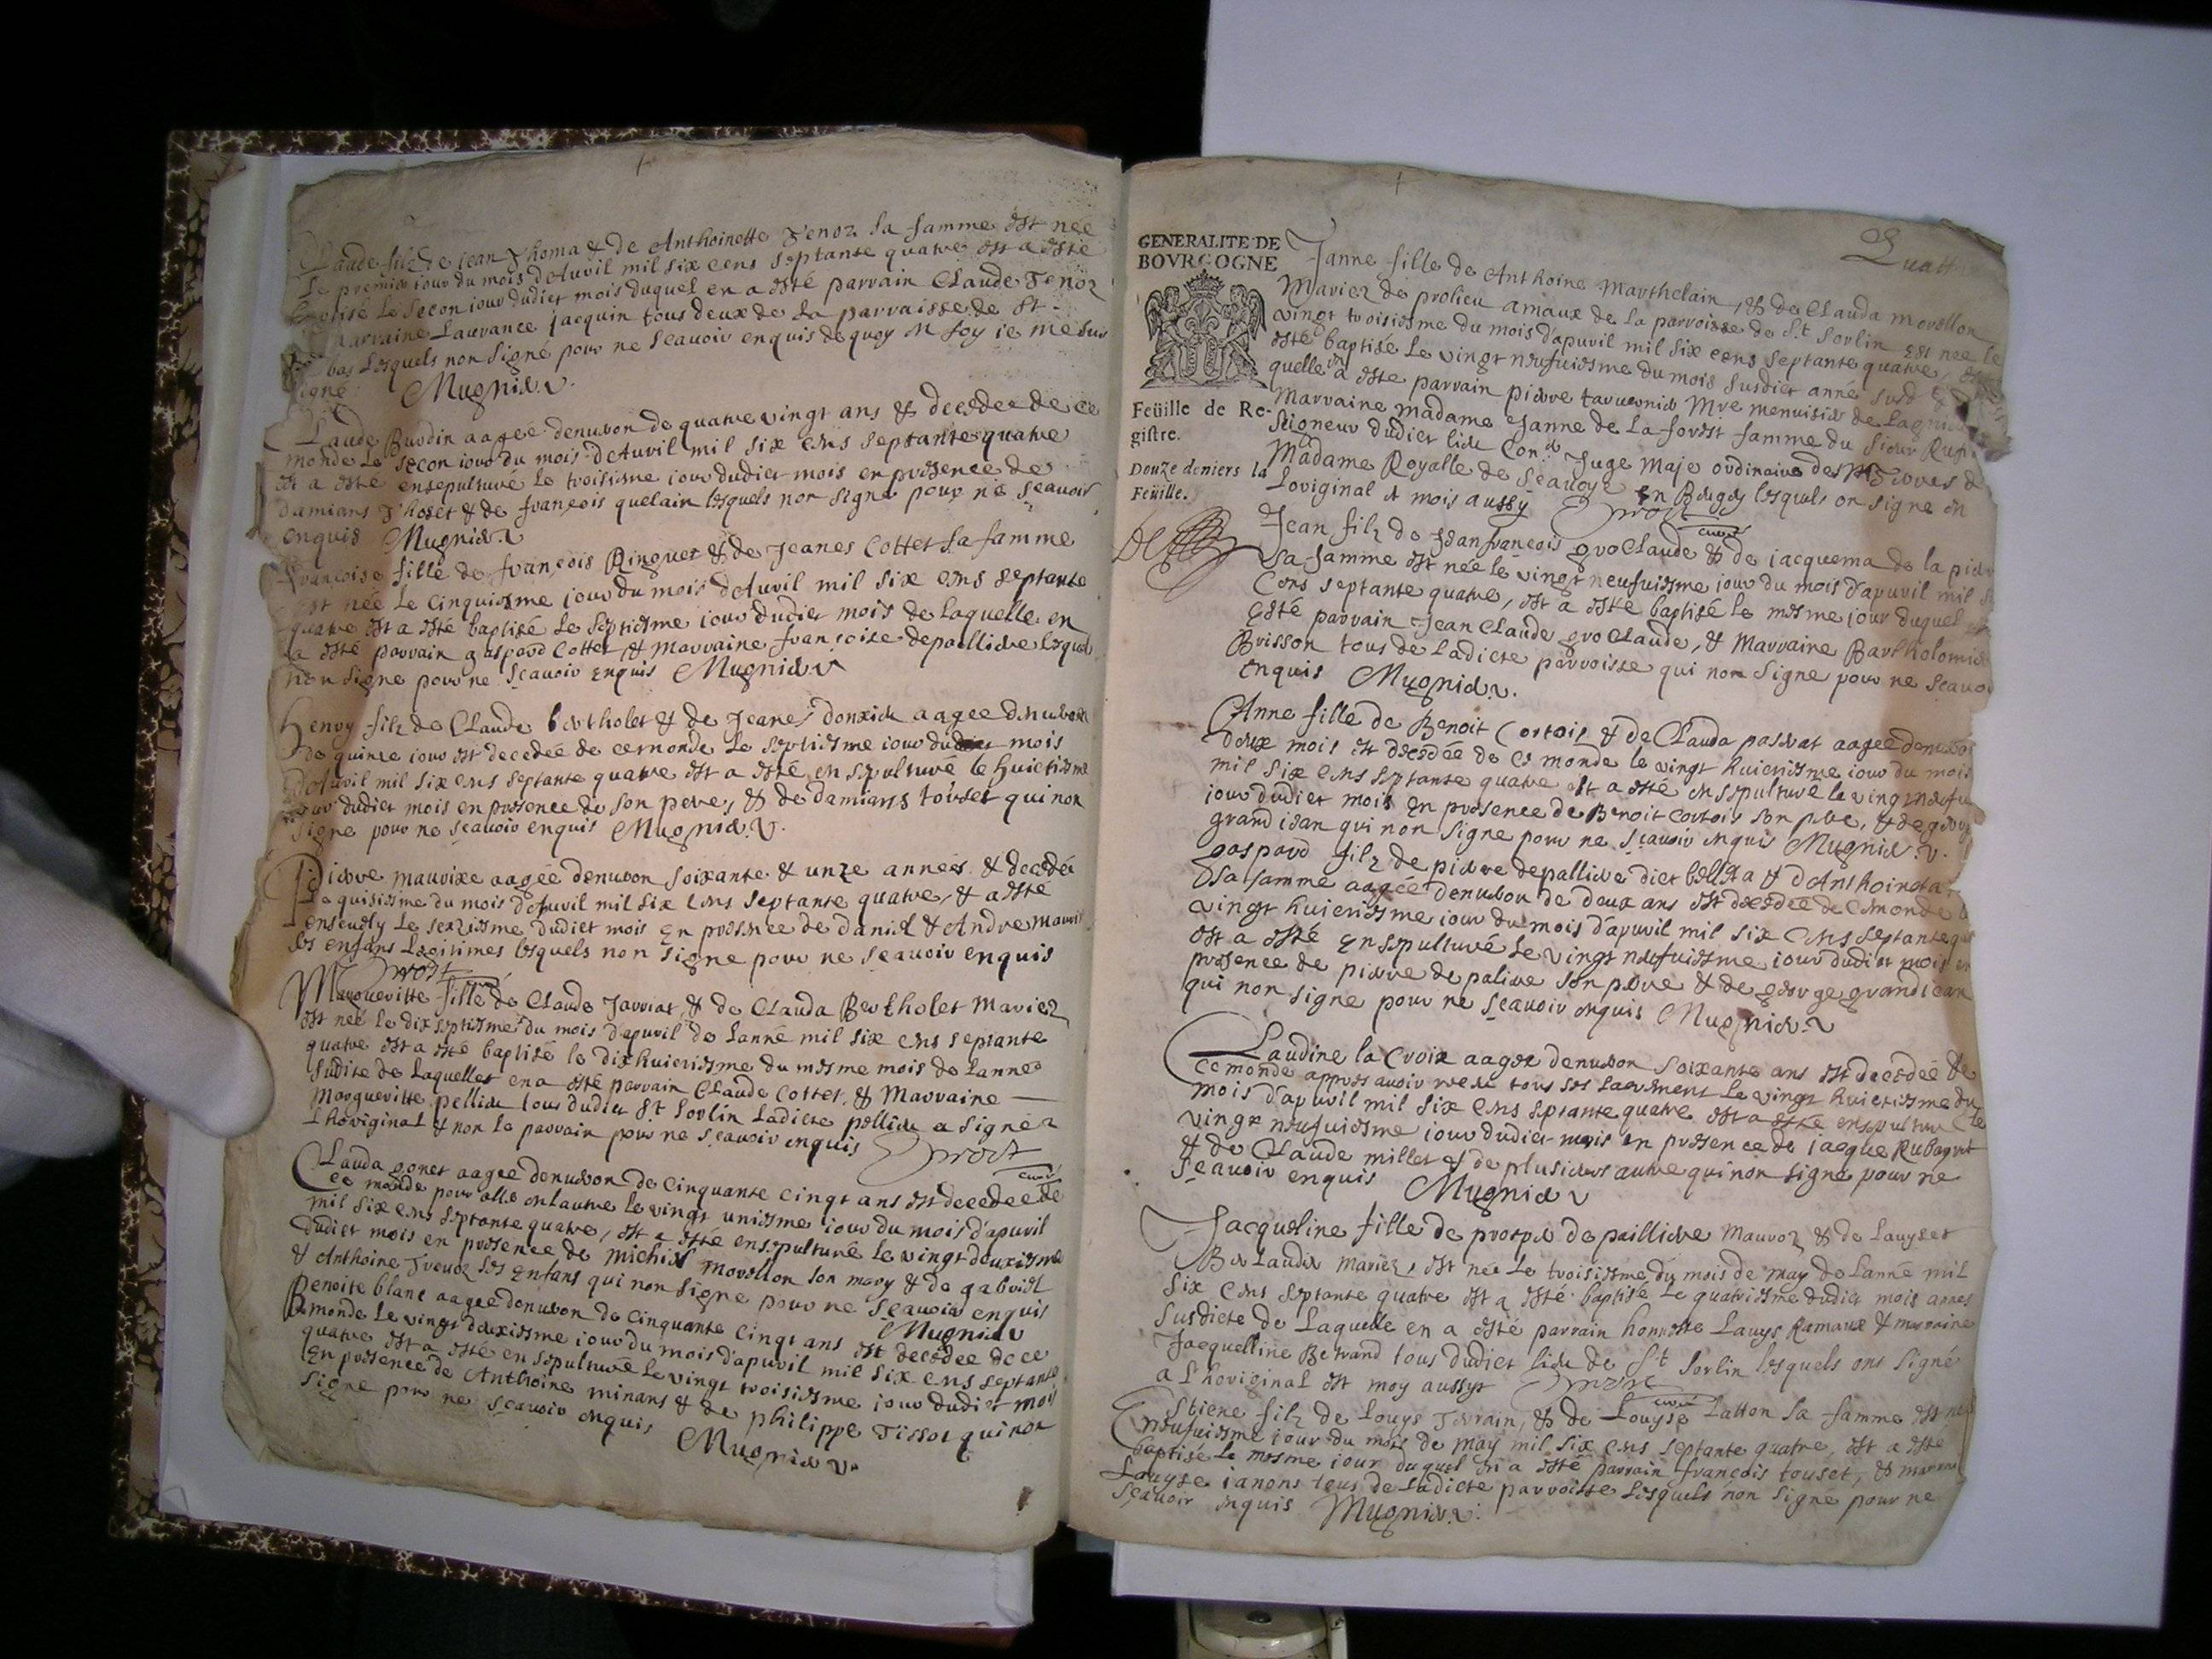 Claude filz de jean Thoma & de Anthoinette Tenoz sa famme est née
Le premier iour du mois dAvvil mil six cens septante quatre est a esté
Baptisé Le secon iour dudict mois duquel en a esté parvain Claude Tenoz
marvaine Lauvance jacquin tous deux de La parvaisse de St
bas Lesquels non signé pour ne sçauoir enquis de quoy en foy ie me suis
signé Mugnier v.
Claude Burdin aagee denuvon de quatre vingt ans & decedee de ce
monde Le secon iour du mois dAvvil mil six cens septante quatre
est a esté ensepulturé Le troisiesme iour dudict mois en presence de
damians Thoset & de françois quelain lesquels non signé pour ne sçauoir
enquis Mugnier v
Françoise fille de françois Ringuet & de Jeanes Cottet sa famme
est née Le cinquiesme iour du mois dAvvil mil six cens septante
quatre est a esté baptisé Le septiesme iour dudict mois de laquelle en
a esté parvain gaspard Cottet & marvaine françoise depalliere lesquel
non signé pour ne sçauoir enquis Mugnier v
Henry filz de Claude bertholet & de Jeane donxier aagee denuvon
de quinze iour est decedée de ce monde Le septiesme iour dudict mois
dAvvil mil six cens septante quatre est a esté en sepulturé le huictiesme
iour dudict mois en presence de son pere, & de damians touset qui non
signé pour ne sçauoir enquis Mugnier v.
Pierre mauvixe aagée denuvon soixante & unze années & decedée
Le quisiesme du mois dAvvil mil six cens septante quatre, & a esté
ensevely Le sexziesme dudict mois en presence de daniel & Andre mauvi
ses enfans Legitimes lesquels non signé pour ne sçauoir enquis
Prost curé
Margueritte fille de Claude Jarriat, & de Clauda Bertholet mariez
est neé Le dixseptiesme du mois dapuvil de Lanné mil six cens septante
quatre est a esté baptisé le dixhuictiesme du mesme mois de Lannee
sudite de Laquelles en a esté parvain Claude Cottet, & Marvaine
Margueritte pellier tous dudict St Sorlin Ladicte pellier a signéz
Lhoriginal & non le parvain pour ne sçauoir enquis Prost curé
Clauda gonet aagee denuvon de cinquante cingt ans est decedee de
ce monde pour alle en lautre le vingt uniesme iour du mois d'apuvil
mil six cens septante quatre, est a esté ensepulturé Le vingt deuxiesme
dudict mois en presence de michiel morellon son mary & de gabriel
& Anthoine Trevoz ses enfans qui non signe pour ne sçauoir enquis
Mugnier v
Benoite blanc aagee denuvon de cinquante cingt ans est decedee de ce
monde Le vingt deuxiesme iour du mois d'apuvil mil six cens septante
quatre est a esté en sepulturé Le vingt troisiesme iour dudict mois
En presence de Anthoine minans & de philippe Tissot qui non
signe pour ne sçauoir enquis
Mugnier v.
Quatt
GENERALITE DE
BOVRGOGNE
Feüille de Re-
gistre.
Douze deniers la
Feüille.
Janne fille de Anthoine Marthelain, & de Clauda morellon
Mariez de prolieu amaux de la parvoisse de St Sorlin est née le
vingt troisiesme du mois d'apuvil mil six cens septante quatre,
esté baptisé Le vingt neufuiesme du mois susdict anné susd
quelle en a esté parvain pierre tavernier Mre menuisier de Lagnieu
Marvaine madame Janne de La forest famme du sieur
seigneur dudict lieu Con.er Juge maje ordinaire des Terres de
Madame Royalle de Seauoye en Bugey lesquels on signé en
Loriginal et mois aussy Prost curé
Jean filz de Jean françois groClaude & de jacquema de la pier
sa famme est née le vingt neufuiesme iour du mois d'apuvil mil
Cens septante quatre, est a esté baptisé le mesme iour duquel
Esté parvain Jean Claude groClaude, & Marvaine Bartholomie
Brisson tous de Ladicte parvoisse qui non signé pour ne sçauo
enquis Mugnier v.
Anne fille de Benoit Cortois & de Clauda paserat aagee denuvo
deux mois est decedée de ce monde le vingt huictiesme iour du mois
mil six cens septante quatre est a esté ensepulturé le vingt neufu
iour dudict mois en presence de Benoit Cortois son pere, & de george
grand ican qui non signe pour ne sçauoir enquis Mugnier v.
gaspard filz de pierre depalliere dict bellita & dAnthoineta
sa famme aagée denuvon de deux ans est decedee de ce monde
vingt huictiesme iour du mois d'apuvil mil six cens septante qua
est a esté ensepulturé Le vingt neufuiesme iour dudict mois en
presence de pierre de paliere son pere & de george grand ican
qui non signe pour ne sçauoir enquis Mugnier v
Claudine la Croix aagee denuvon soixante ans est decedée de
ce monde appres auoir receu tous ses sacrement Le vingt huictiesme du
mois d'apuvil mil six cens septante quatre est a esté ensepulturé Le
vingt neufuiesme iour dudict mois en presence de jacque Rubagnt
& de Claude millet & de plusieurs autre qui non signe pour ne
sçauoir enquis Mugnier v
Jacqueline fille de prosper de pailliere Mauroz & de Lauyset
Berlaudier mariéz, est née Le troisiesme du mois de may de Lanné mil
six cens septante quatre est a esté baptisé Le quatriesme dudict mois annee
susdicte de Laquelle en a esté parvain honneste Lauys Ramaux & marvaine
Jacquelline Betrand tous dudict lieu de St Sorlin lesquels ons signé
a Lhoriginal est moy aussyt Prost curé
Estiene filz de Louys Terrain, & de Louyse Latton sa famme est né
neufuiesme iour du mois de may mil six cens septante quatre, est a esté
baptisé Le mesme iour duquel en a esté parvain françois touset, & marvai
Lauyse ianons tous de Ladicte parvoisse lesquels non signé pour ne
sçauoir enquis Mugnier v.